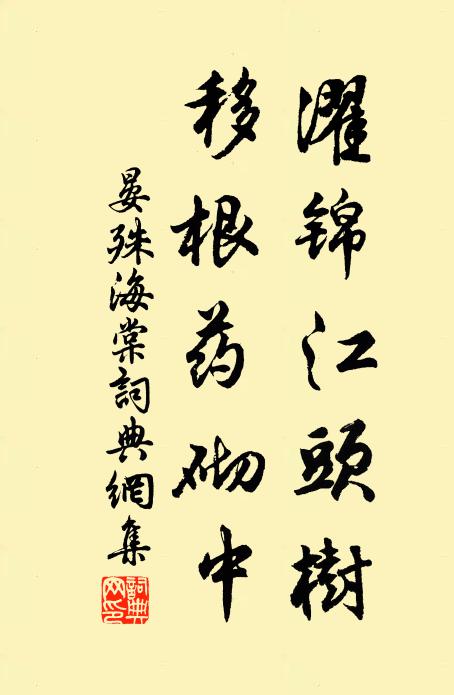 濯錦江頭樹
移根药砌中
晏殊海棠詞典網集
詞典
网印